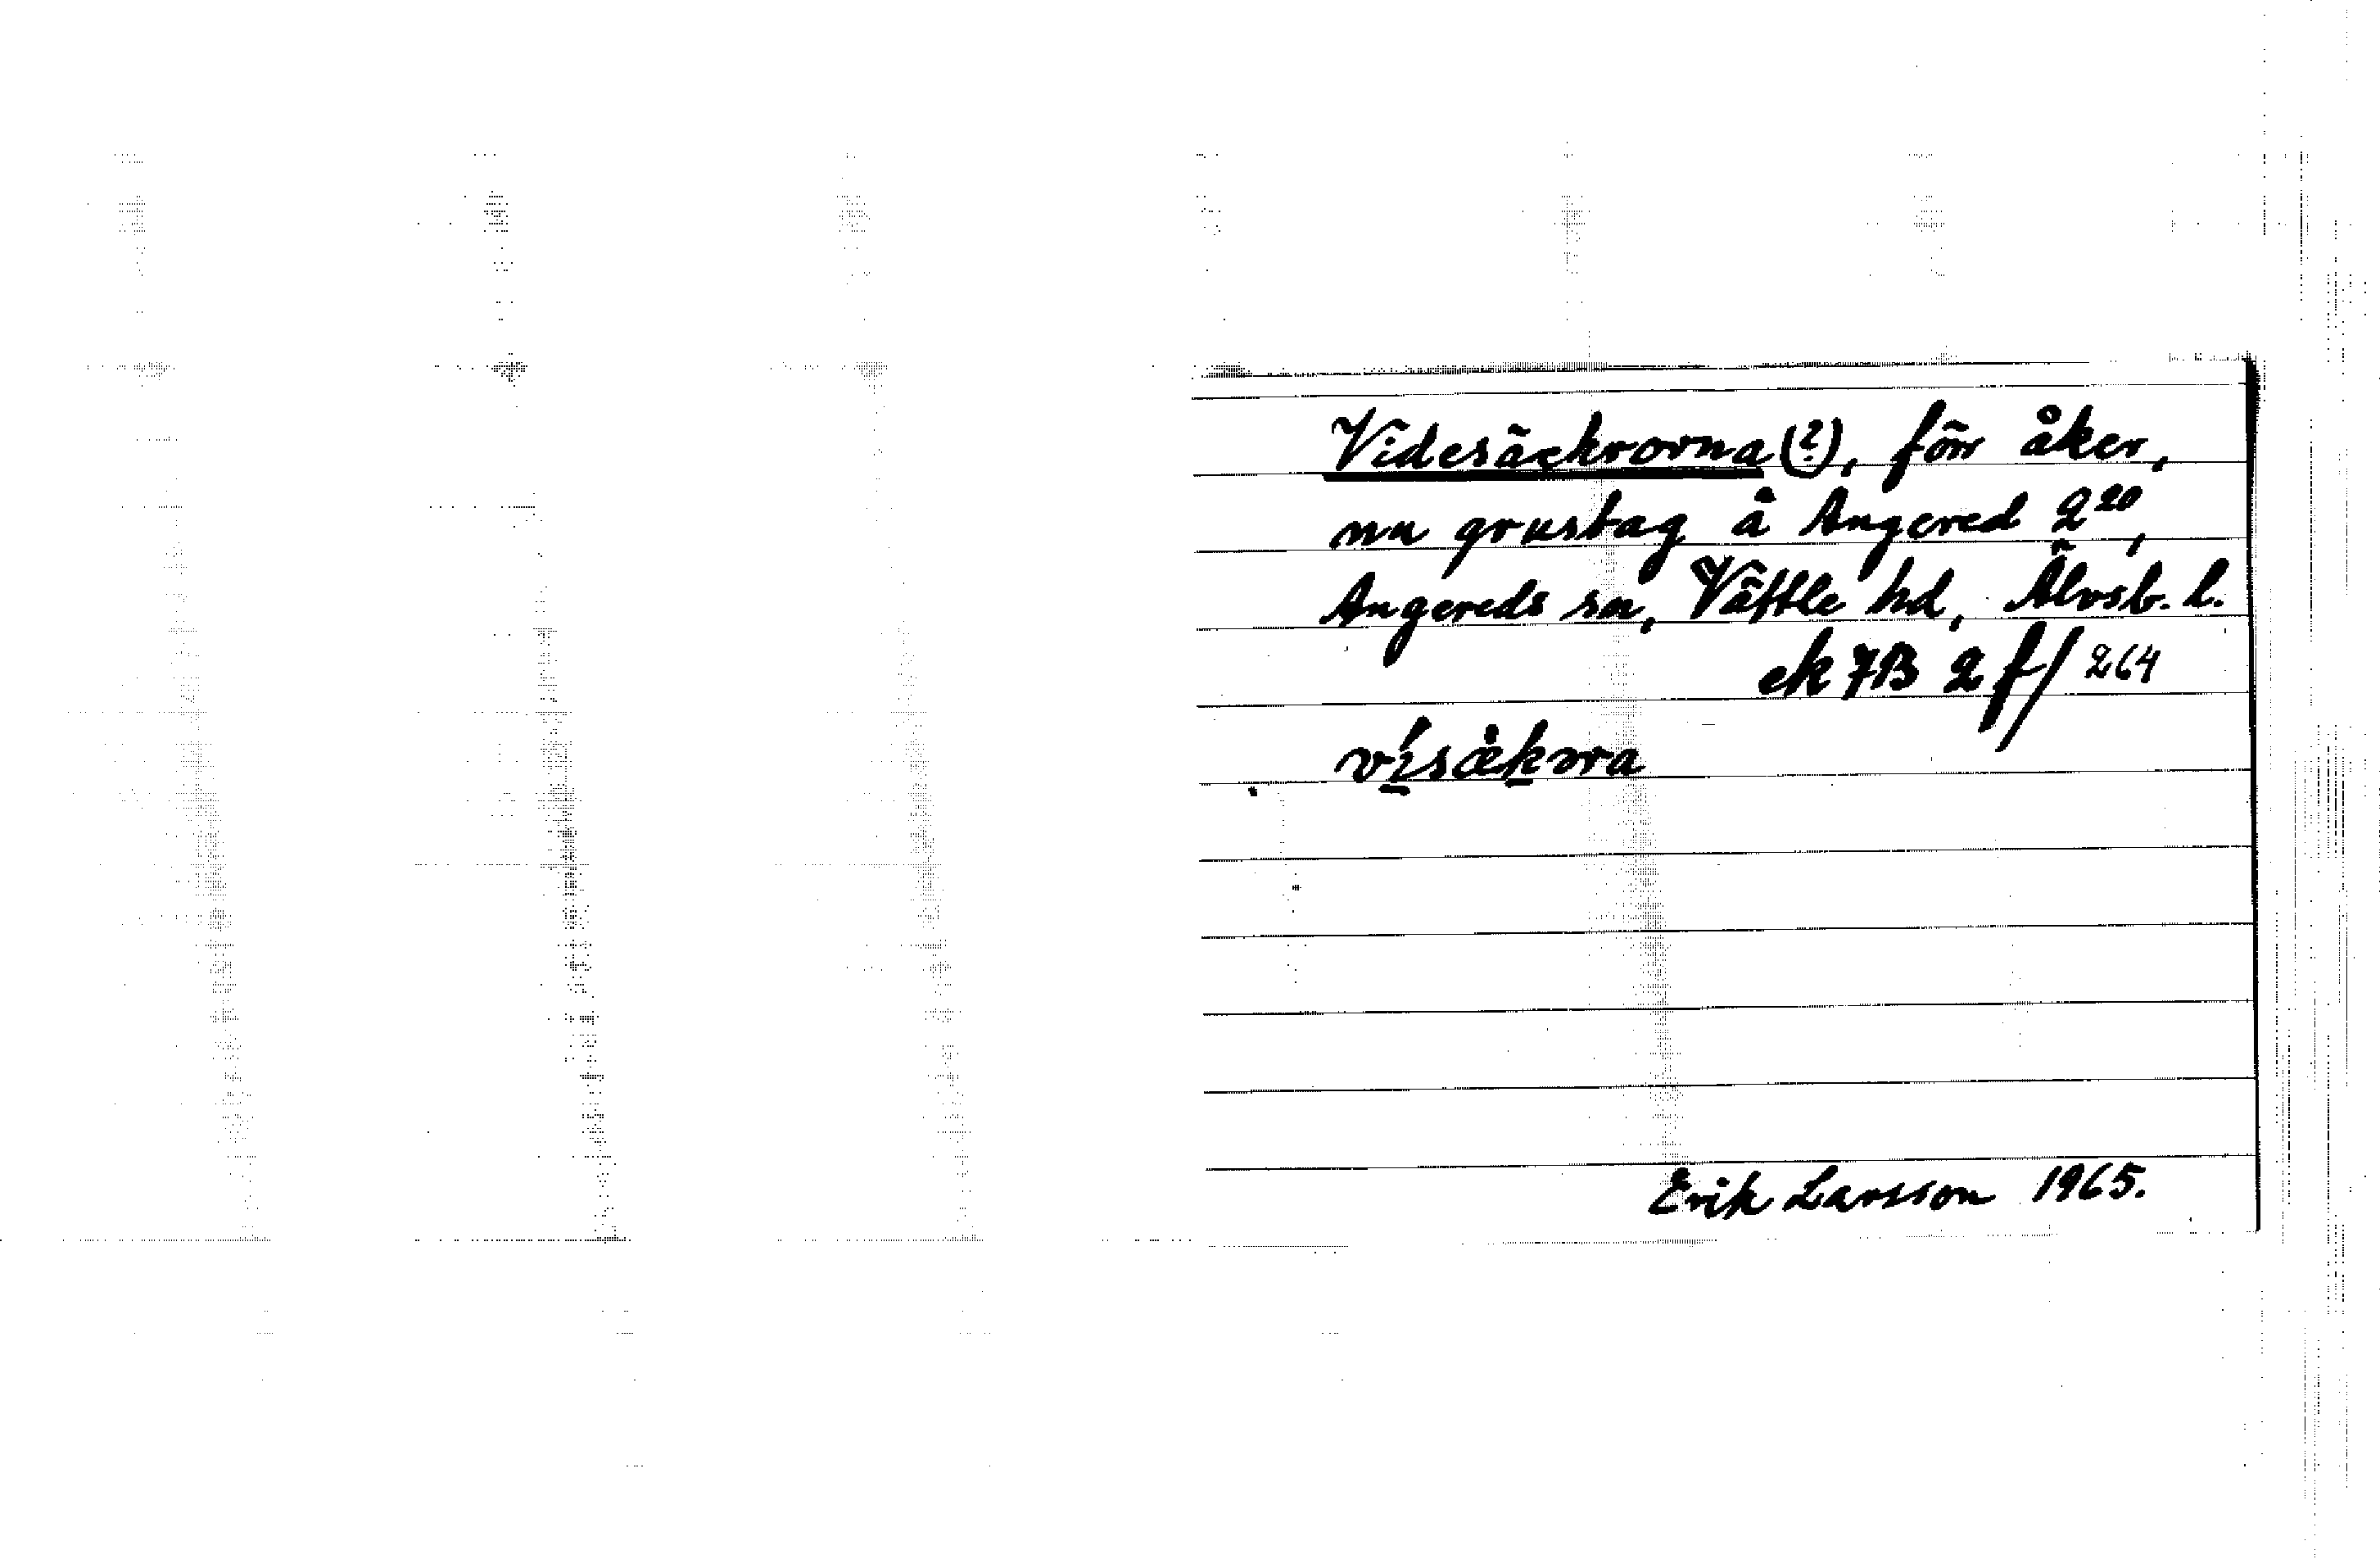 Videsäckrorna (?), förr åker,
nu grustag å Angered 2²⁰,
Angereds sn, Vättle hd, Älvsb. l.
ek 7B 2 f/264
vísækəra
Erik Larsson 1965.